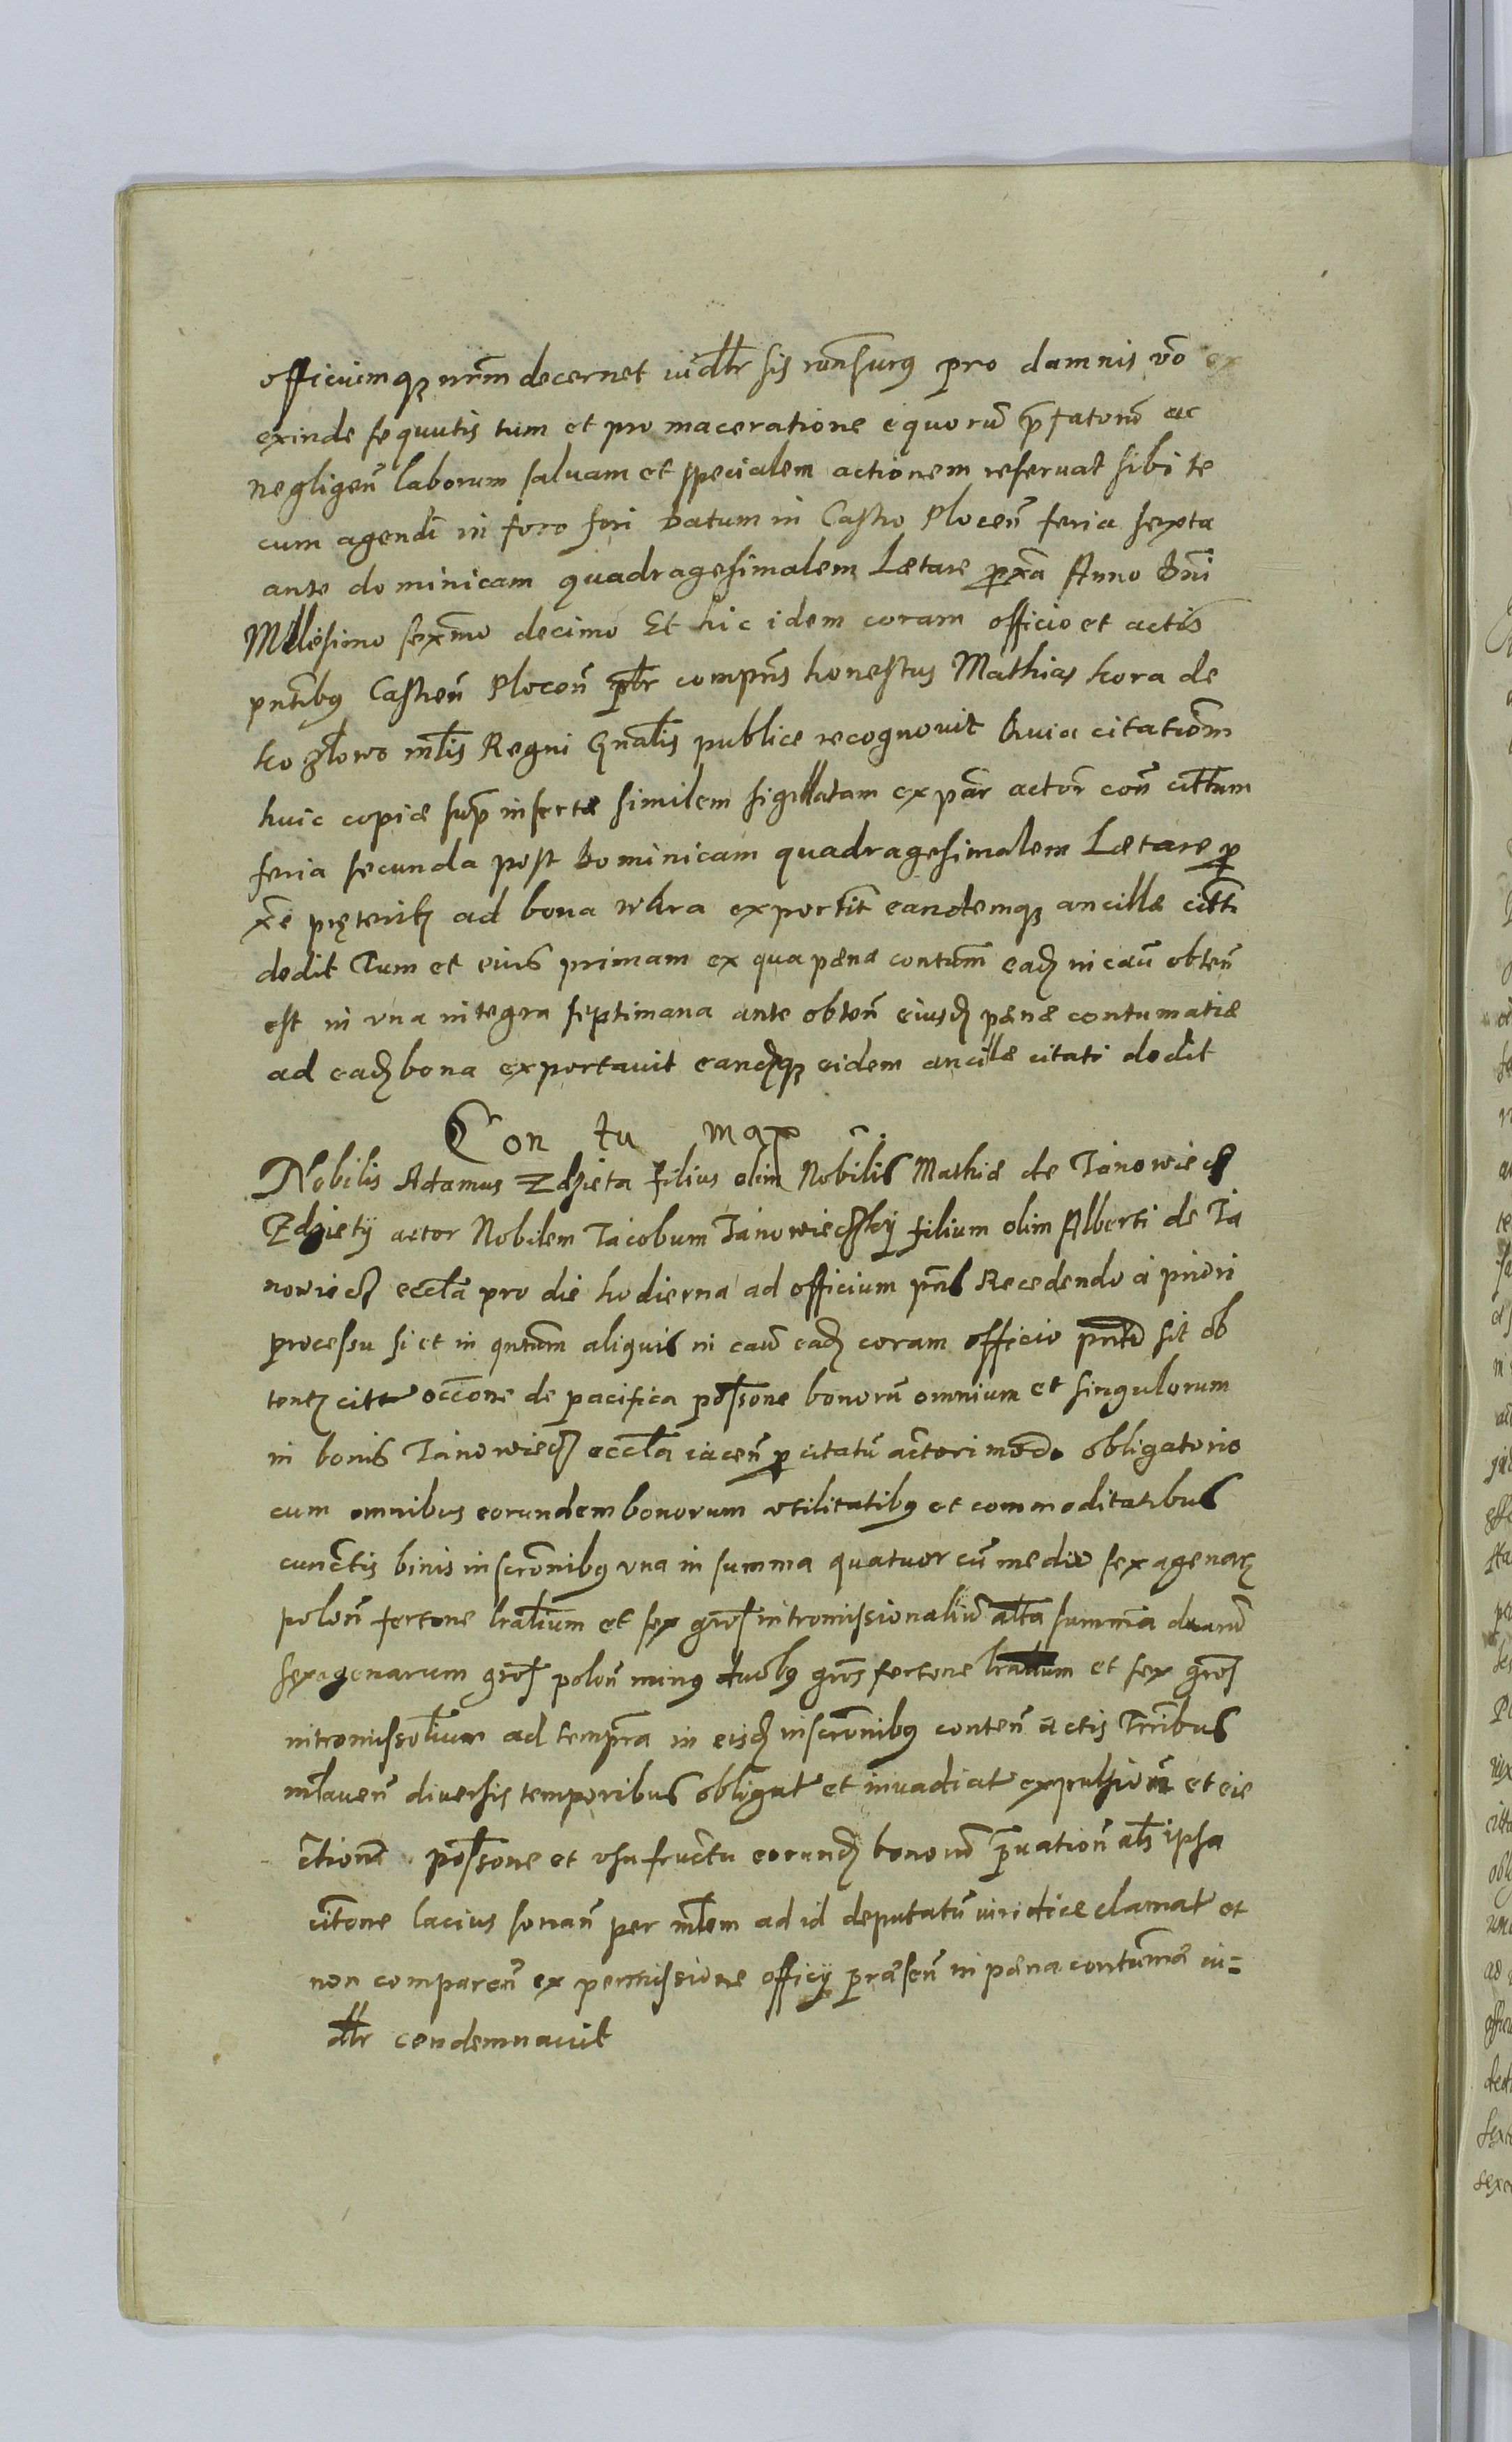 officiumq₃ nr̃m decernet iudltr sis rōnsurꝰ pro damnis v̄o ex
exinde sequutis tum et pro maceratione equorū p̄fatorū ac
negligeñ laborum saluam et specialem actionem reseruat sibi te
cum agendi in foro fori Datum in Castro Ploceñ feria sexta
ante dominicam quadragesimalem Lætare pxã Anno Dñi
Millesimo sexm̃o decimo Et hic idem coram officio et actis
pñtibꝰ Castreñ Ploceñ pltr compñs honestus Mathias kora de
kozłowo mlis Regni Gñalis publice recognouit Quia citatiom̃
huic copiæ sup̃ insertæ similem sigillatam ex par̃ actor̃ coñ cittum
feria secunda post Dominicam quadragesimalem Lætare p
xe præterit₃ ad bona wkra exportit̃ eandemq₃ ancillæ citti
dedit Tum et eius primam ex qua pæna contum̃ ead₃ in cau᷉ obteñ
est in vna integra septimana ante obteñ eiusd₃ pænæ contumatiæ
ad ead₃ bona exportauit eand₃q₃ eidem ancillæ citati dedit
Con tu max
Nobilis Adamus Zdzieta filius olim Nobilis Mathiæ de Janowiec₃
Zdziety actor Nobilem Jacobum Janowieczky filium olim Alberti de Ja
nowiec₃ eccla pro die hodierna ad officium pñs Recedendo a priori
processu si et in qntum aliquis in cau᷉ ead₃ coram officio pñti sit ob
tent₃ citt occone de pacifica possone bonorū omnium et singulorum
in bonis Janowiec₃ eccla iaceñ p citatū actori modo obligatorio
cum omnibus eorundem bonorum vtilitatibꝰ et commoditatibus
cunctis binis inscrõnibꝰ vna in summa quatuor cū medio sexagenar₃
poloñ fertone lralium et sex gros intromissionaliū alta summa duarū
sexagenarum gros poloñ minꝰ duobꝰ gros fertone lralium et sex gros
intromissolium ad tempra in eisd₃ inscrõnibꝰ conteñ actis Trribus
mlaueñ diuersis temporibus obligat et inuadiat expulsioñ et eie
ctioñ possone et vsufructu eorund₃ bonorū p̄uatioñ als ipsa
citone lacius sonañ per mlem ad id deputatū iuridice clamat et
non compareñ ex permissione officij præseñ in pæna contuma iu=
dltr condemnauit